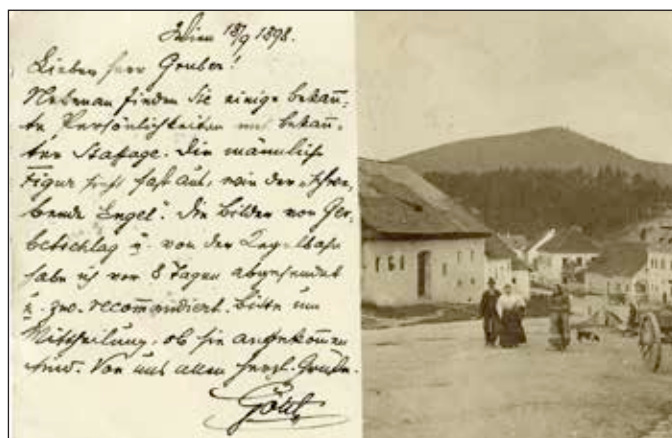 Wien 18/9 1898.
Lieber Herr Gruber!
Nebenan finden Sie einige bekann-
te Persönlichkeiten mit bekann-
ter Staffage. Die männliche
Figur sieht fast aus, wie der „schwe-
bende Engel“. Die Bilder von Ger-
betschlag u. von der Kegelbahn
habe ich vor 8 Tagen abgesendet
u. zw. recommandiert. Bitte um
Mittheilung, ob sie angekommen
sind. Von uns allen herzl. Grüße.